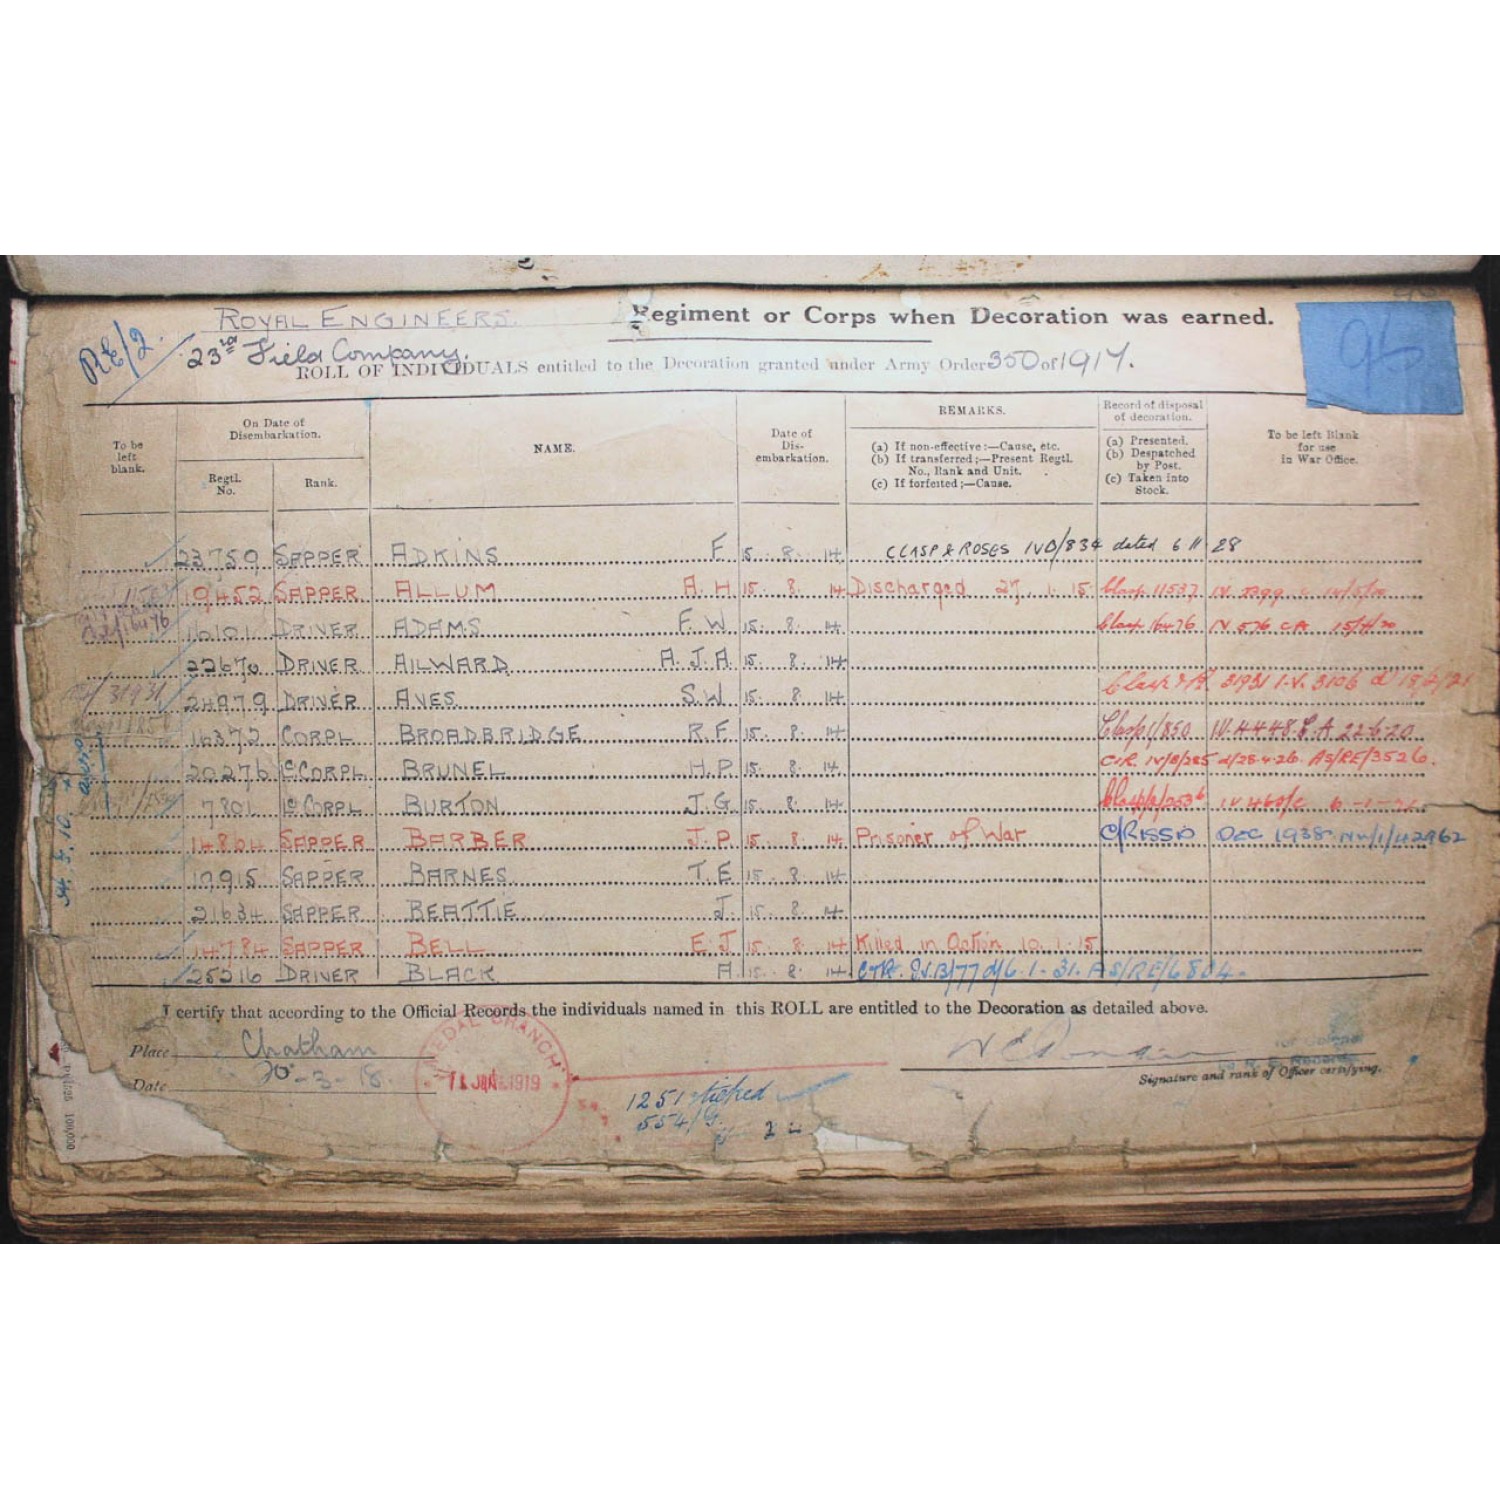 RE/2.
ROYAL ENGINEERS. Regiment or Corps when Decoration was earned.
96
23rd Field Company.
ROLL OF INDIVIDUALS entitled to the Decoration granted under Army Order 350 of 1917.
To be left blank.
On Date of Disembarkation.
Regtl. No.
Rank.
NAME.
Date of Dis-embarkation.
REMARKS.
(a) If non-effective:—Cause, etc.
(b) If transferred;—Present Regtl. No., Rank and Unit.
(c) If forfeited;—Cause.
Record of disposal of decoration.
(a) Presented.
(b) Despatched by Post.
(c) Taken into Stock.
To be left Blank for use in War Office.
23759 SAPPER ADKINS F. 15. 8. 14 CLASP & ROSES IVB/834 dated 6 11 28
19452 SAPPER ALLUM A. H. 15. 8. 14 Discharged 27. 1. 15. Clasp 11537
16101 DRIVER ADAMS F. W. 15. 8. 14 Clasp 16476 IV 576 CA 15/4/20
22670 DRIVER AILWARD A. J. A. 15. 8. 14
24979 DRIVER AVES S. W. 15. 8. 14 Clasp 31931 I.V. 3106 d/ 15/2/21
16372 CORPL BROADBRIDGE R. F. 15. 8. 14 Clasp 1/850 IV.4448.C.A 22-6-20
20276 L/CORPL BRUNEL H. P. 15. 8. 14 C.R. IV/B/285 d/28-4-26. AS/RE/3526.
7801 L/CORPL BURTON J. G. 15. 8. 14
14804 SAPPER BARBER J. P. 15. 8. 14 Prisoner of War C/R ISSD DEC 1938 NW/1/42962
19915 SAPPER BARNES T. E. 15. 8. 14
21634 SAPPER BEATTIE J. 15. 8. 14
14784 SAPPER BELL E. J. 15. 8. 14 Killed in Action 10. 1. 15
25216 DRIVER BLACK A. 15. 8. 14 d/6.1.31. AS/RE/6804.
I certify that according to the Official Records the individuals named in this ROLL are entitled to the Decoration as detailed above.
Place Chatham
Date 20-3-18.
MEDAL BRANCH.
JAN 1919
1251 sticked
554/
Signature and rank of Officer certifying.